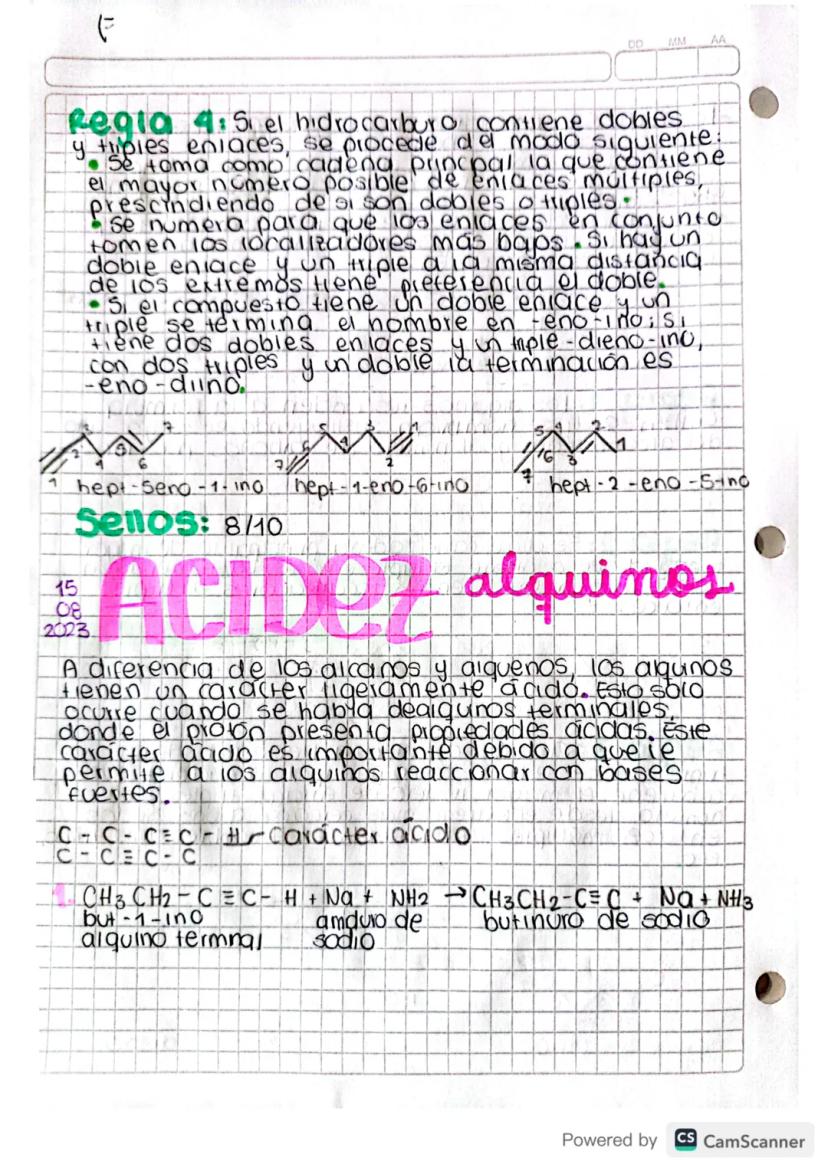 DD MM AA
Regla 4: Si el hidrocarburo contiene dobles
y triples enlaces, se procede del modo siguiente:
• Se toma como cadena principal la que contiene
el mayor número posible de enlaces múltiples,
prescindiendo de si son dobles o triples.
• Se numera para que los enlaces en conjunto
tomen los localizadores más bajos. Si hay un
doble enlace y un triple a la misma distancia
de los extremos tiene preferencia el doble.
• Si el compuesto tiene un doble enlace y un
triple se termina el nombre en -eno-ino; si
tiene dos dobles enlaces y un triple -dieno-ino,
con dos triples y un doble la terminación es
-eno-diino.
1 2 3 4 5 6 7
7 6 5 4 3 2 1
7 6 5 4 3 2 1
hept-5eno-1-ino hept-1-eno-6-ino hept-2-eno-5-ino
Sellos: 8/10
15
08
2023
ACIDEZ alquinos
A diferencia de los alcanos y alquenos, los alquinos
tienen un carácter ligeramente ácido. Esto solo
ocurre cuando se habla dealquinos terminales,
donde el protón presenta propiedades ácidas. Este
carácter ácido es importante debido a que le
permite a los alquinos reaccionar con bases
fuertes.
C - C - C ≡ C - H carácter ácido
C - C ≡ C - C
1. CH3 CH2 - C ≡ C - H + Na + NH2 → CH3CH2-C≡C + Na + NH3
but-1-ino amduro de butinuro de sodio
alquino termnal sodio
Powered by CS CamScanner